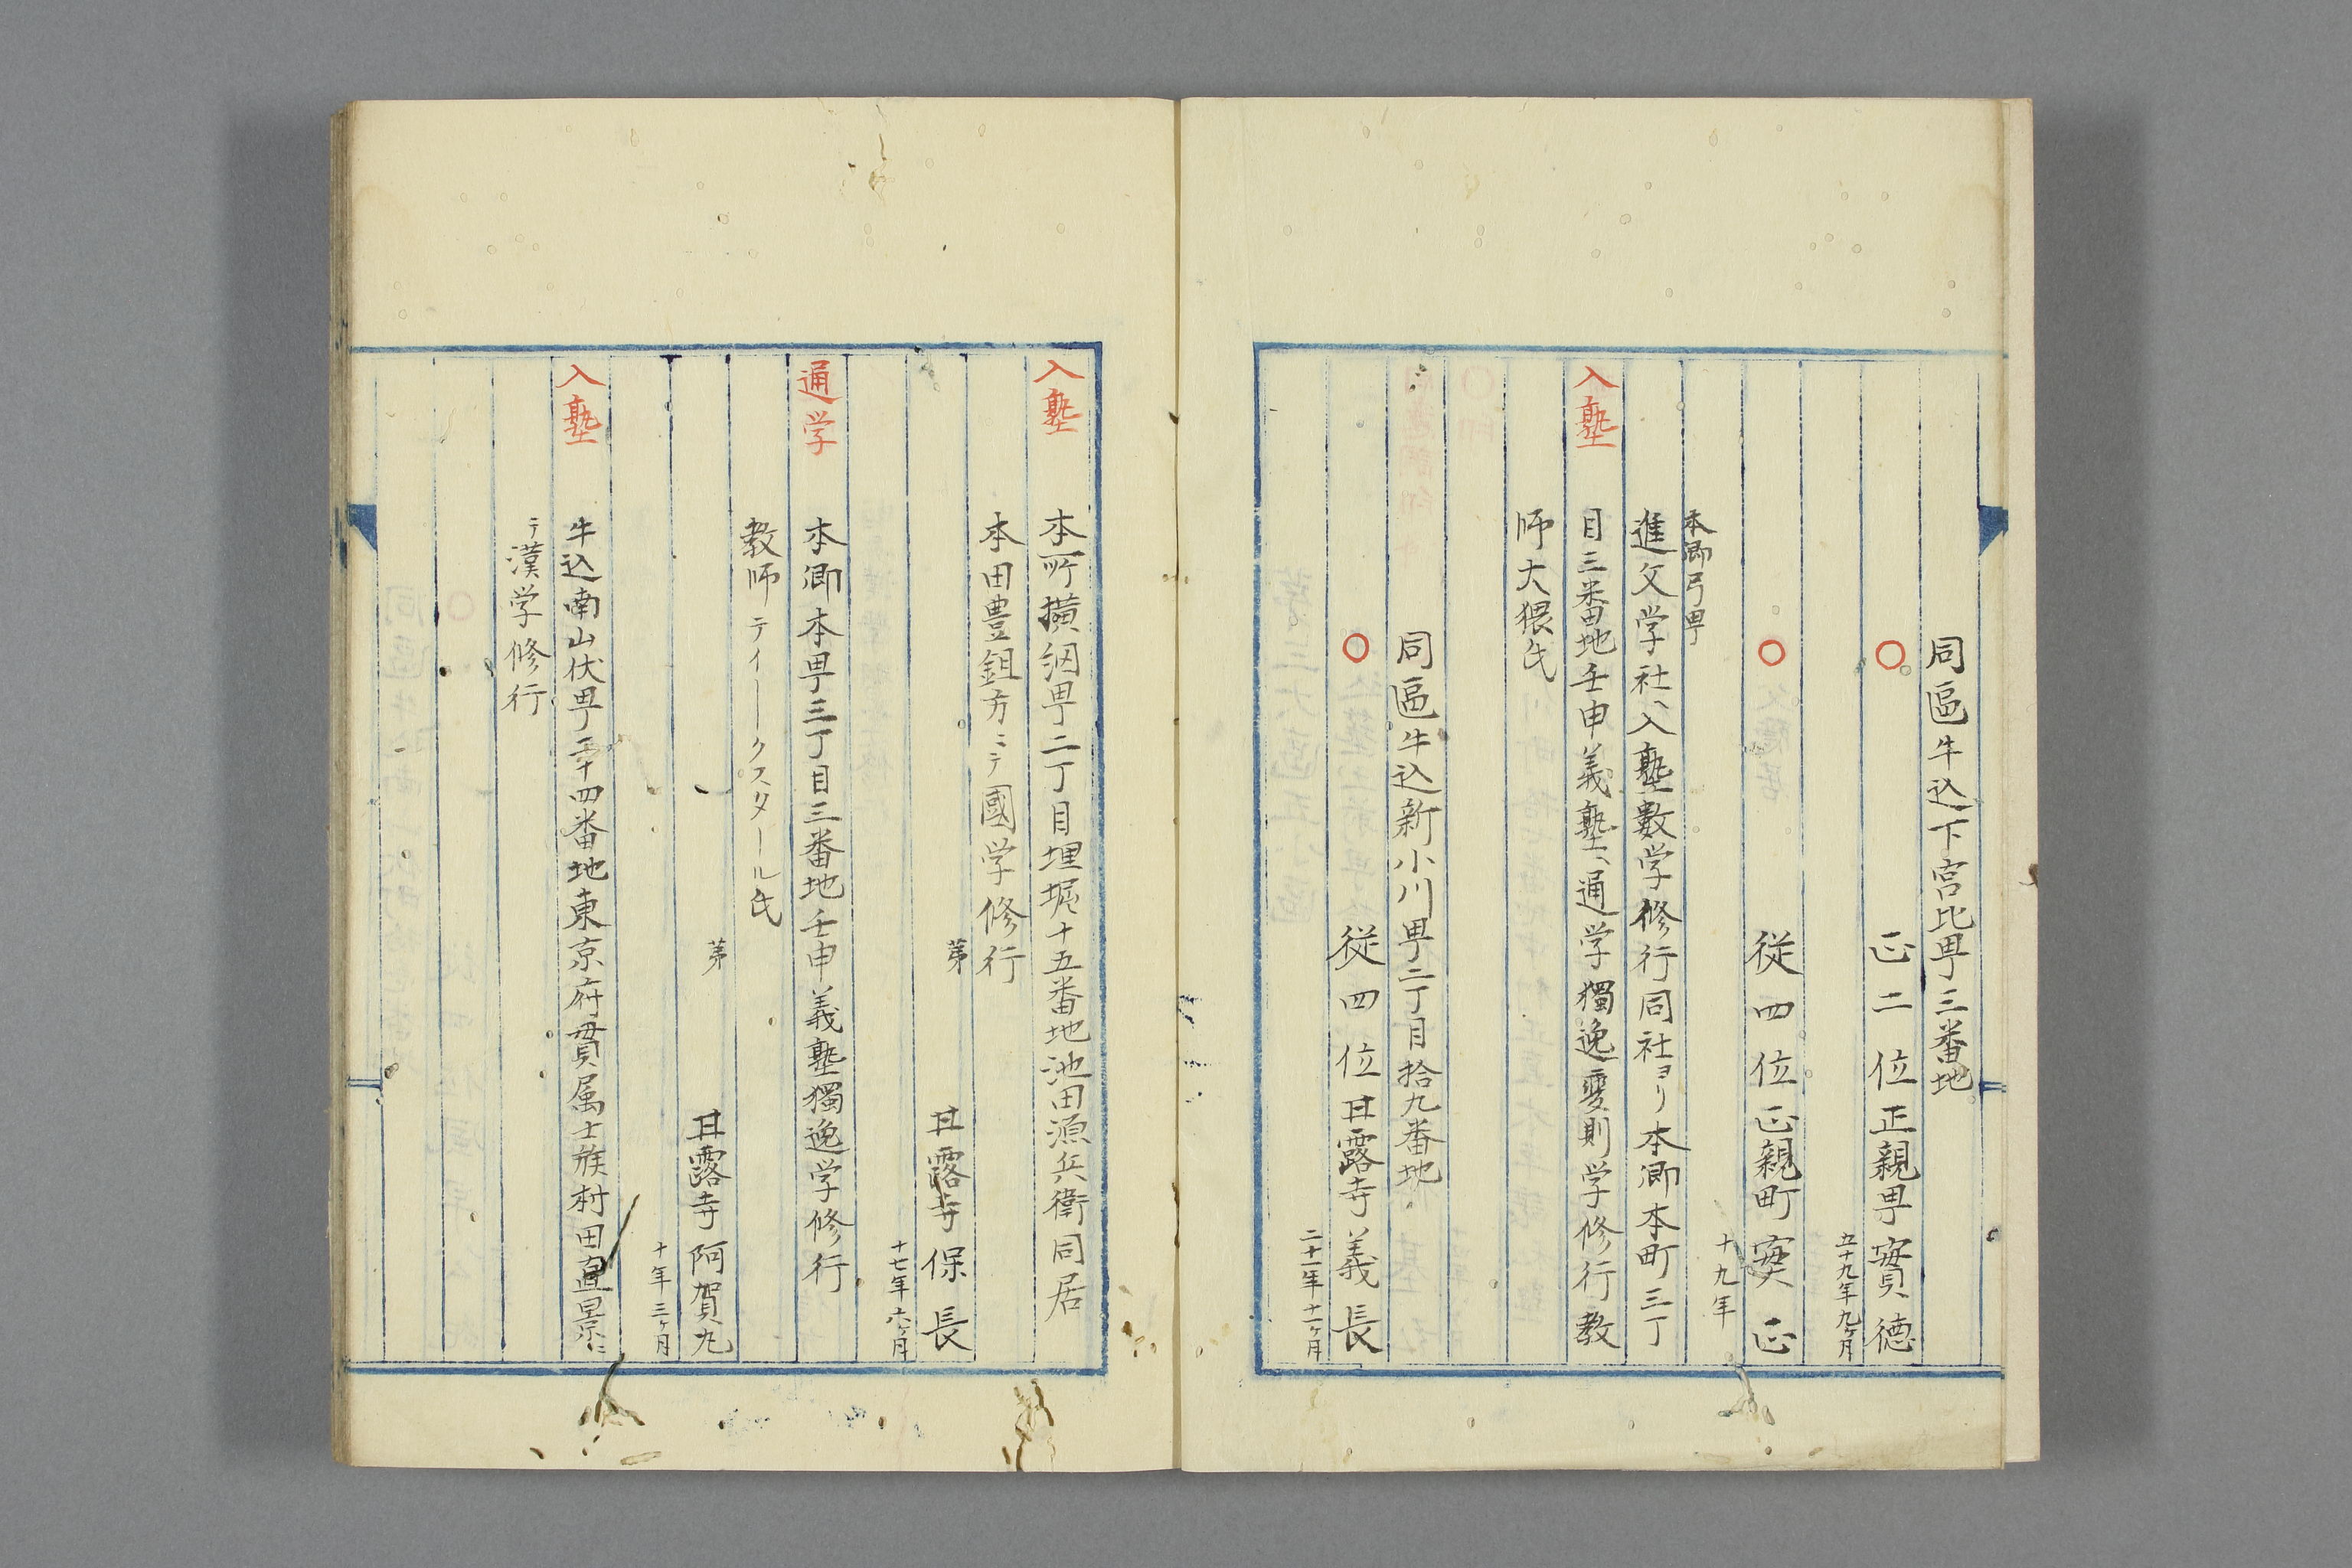 同區牛込下宮比甼三番地
○ 正二位正親甼實德
五十九年九ヶ月
○ 従四位正親町実正
十九年
本郷弓甼
進文学社ヘ入塾數学修行同社ヨリ本郷本町三丁
入塾 目三番地壬申義塾ヘ通学獨逸変則学修行教
師大猥氏
同區牛込新小川甼二丁目拾九番地
○ 従四位甘露寺義長
二十一年十一ヶ月
入塾 本所横網甼二丁目埋堀十五番地池田源兵衛同居
本田豊鉏方ニテ國学修行
苐 甘露寺保長
十七年六ヶ月
通学 本郷本甼三丁目三番地壬申義塾獨逸学修行
教師テイークスタール氏
苐 甘露寺阿賀丸
十年三ヶ月
入塾 牛込南山伏甼二十四番地東京府貫属士族村田直景ニ
テ漢学修行